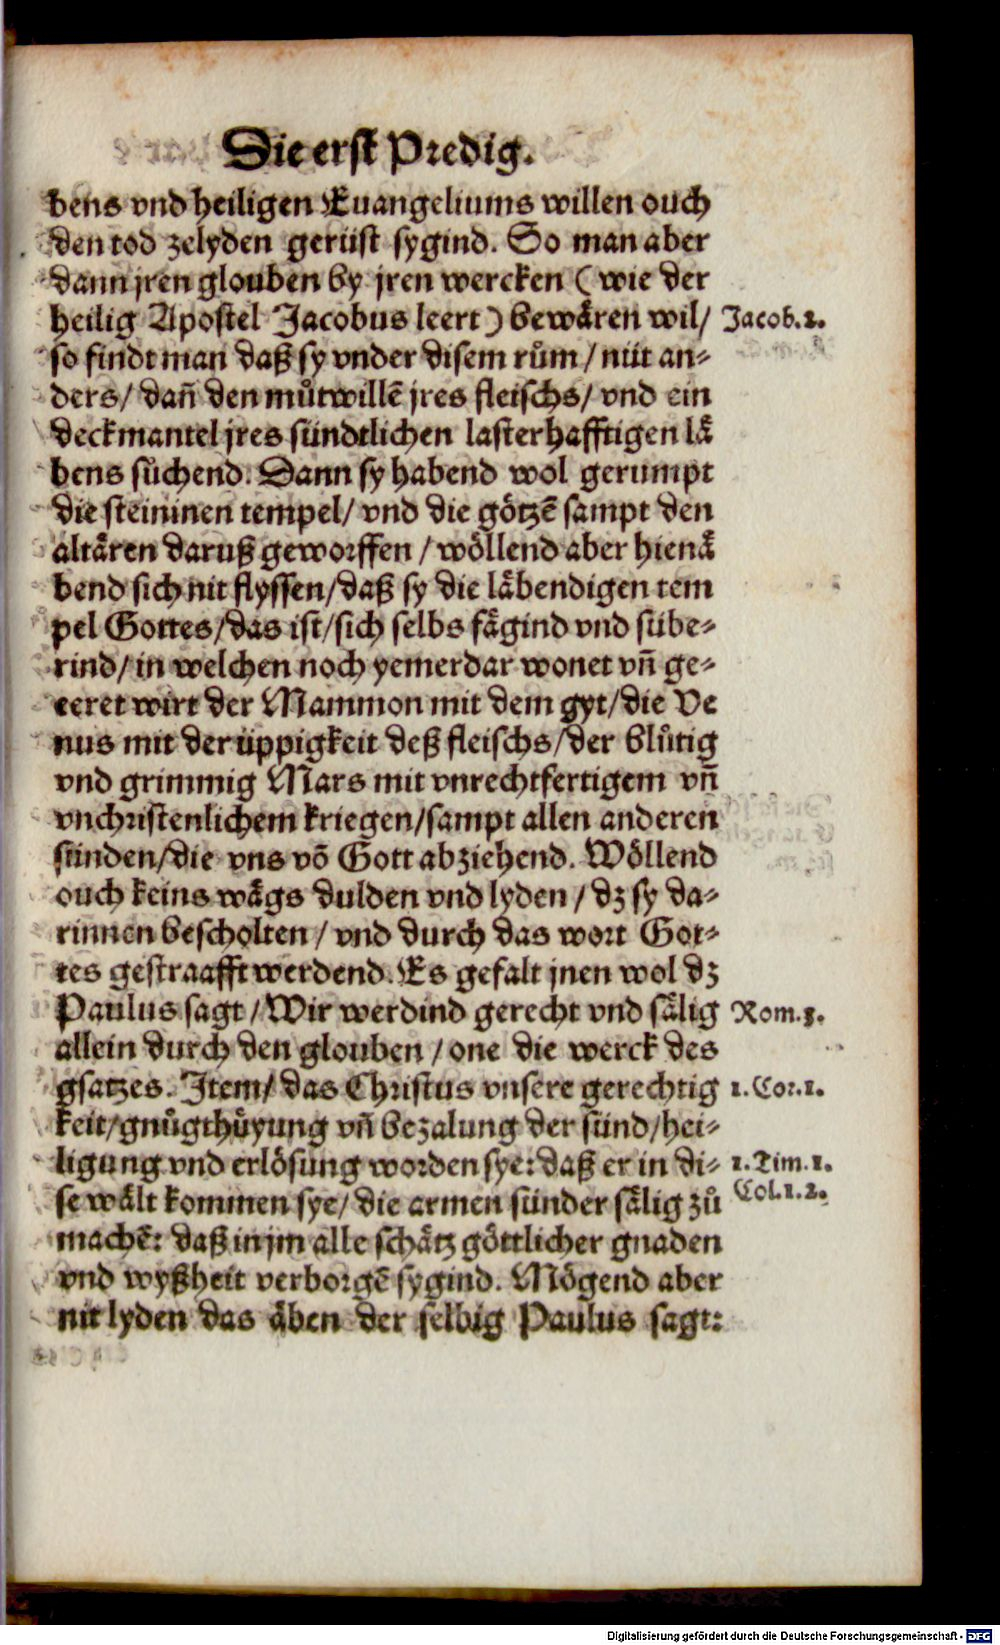 Die erst Predig.
bens vnd heiligen Euangeliums willen ouch
den tod zelyden gerüst sygind. So man aber
dann jren glouben by jren wercken ( wie der
heilig Apostel Jacobus leert ) bewären wil/ Jacob.2.
so findt man daß sy vnder disem rům / nüt an-
ders/ dañ den můtwillē jres fleischs/ vnd ein
deckmantel jres sündtlichen lasterhafftigen lä
bens sůchend. Dann sy habend wol gerumpt
die steininen tempel/ vnd die götzē sampt den
altären daruß geworffen / wöllend aber hienä
bend sich nit flyssen/ daß sy die läbendigen tem
pel Gottes/das ist/sich selbs fägind vnd sübe-
rind/ in welchen noch yemerdar wonet vñ ge-
eeret wirt der Mammon mit dem gyt/die Ve
nus mit der üppigkeit deß fleischs/der blůtig
vnd grimmig Mars mit vnrechtfertigem vñ
vnchristenlichem kriegen/sampt allen anderen
sünden/die vns võ Gott abziehend. Wöllend
ouch keins wägs dulden vnd lyden / dz sy da-
rinnen bescholten / vnd durch das wort Got-
tes gestraafft werdend. Es gefalt jnen wol dz
Paulus sagt / Wir werdind gerecht vnd sälig Rom.3.
allein durch den glouben / one die werck des
gsatzes. Item/ das Christus vnsere gerechtig 1. Cor.1.
keit/gnůgthůyung vñ bezalung der sünd/hei-
ligung vnd erlösung worden sye: daß er in di- 1. Tim.1.
se wält kommen sye/ die armen sünder sälig zů Col.1.2.
machē: daß in jm alle schätz göttlicher gnaden
vnd wyßheit verborgē sygind. Mögend aber
nit lyden das äben der selbig Paulus sagt:
Digitalisierung gefördert durch die Deutsche Forschungsgemeinschaft - DFG